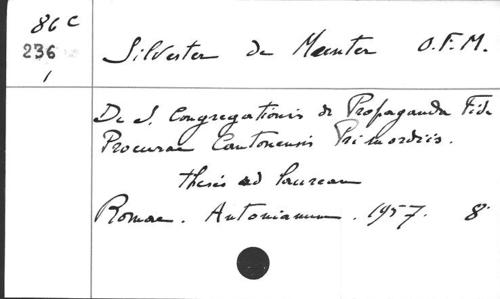 86 C
236
1
Silvester de Munter O.F.M.
De S. Congregationis de Propaganda Fide
Procurae Cantonensis Primordiis.
thesis ad lauream
Romae. Antonianum. 1957. 8°